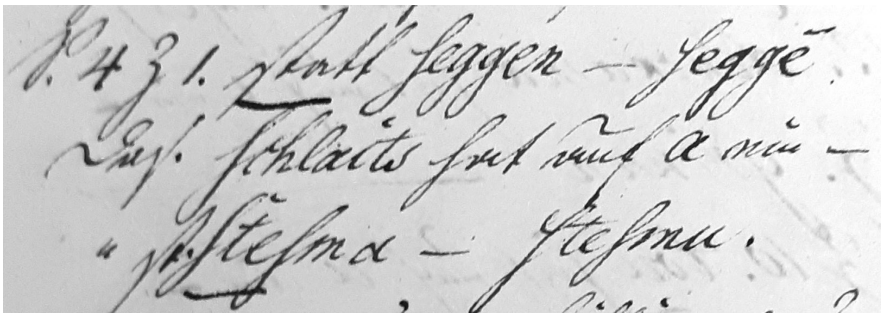 S. 4 Z 1. statt seggen — seggē.
Das. schlaits hat auf a ein —
" st. stesma — stesmu.